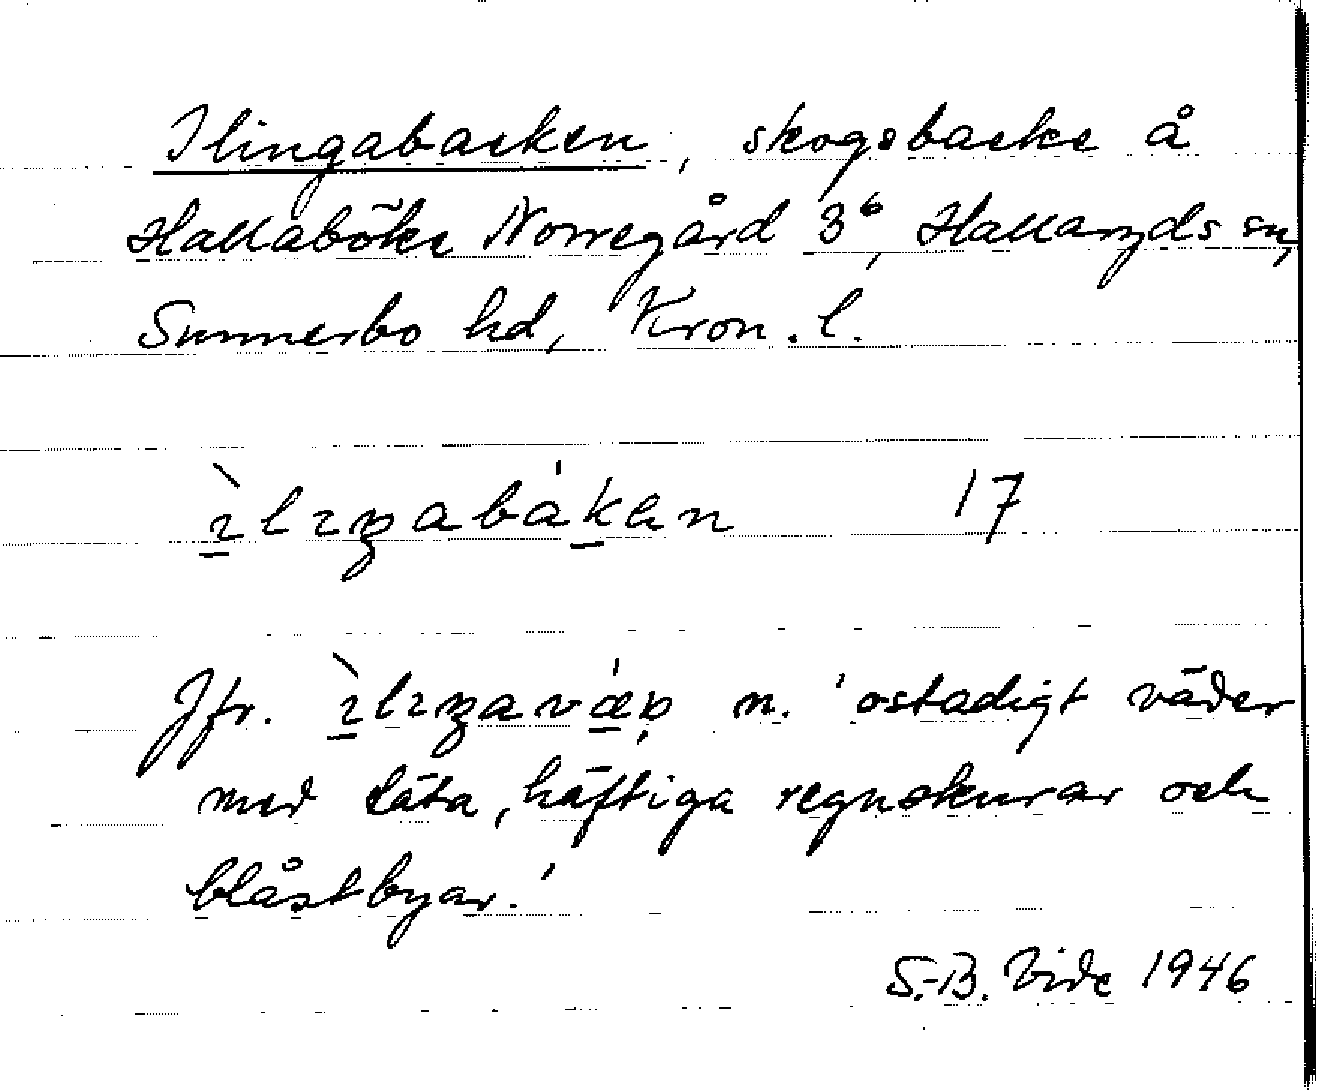 Ilingabacken, skogsbacke å
Hallaböke Norregård 3⁶, Hallaryds sn,
Sunnerbo hd, Kron. l.
ı̲̀lıŋabák̲en 17
Jfr. ı̲̀lıŋavǽ̲ḍ n. 'ostadigt väder
med täta, häftiga regnskurar och
blåstbyar.'
S.-B. Vide 1946